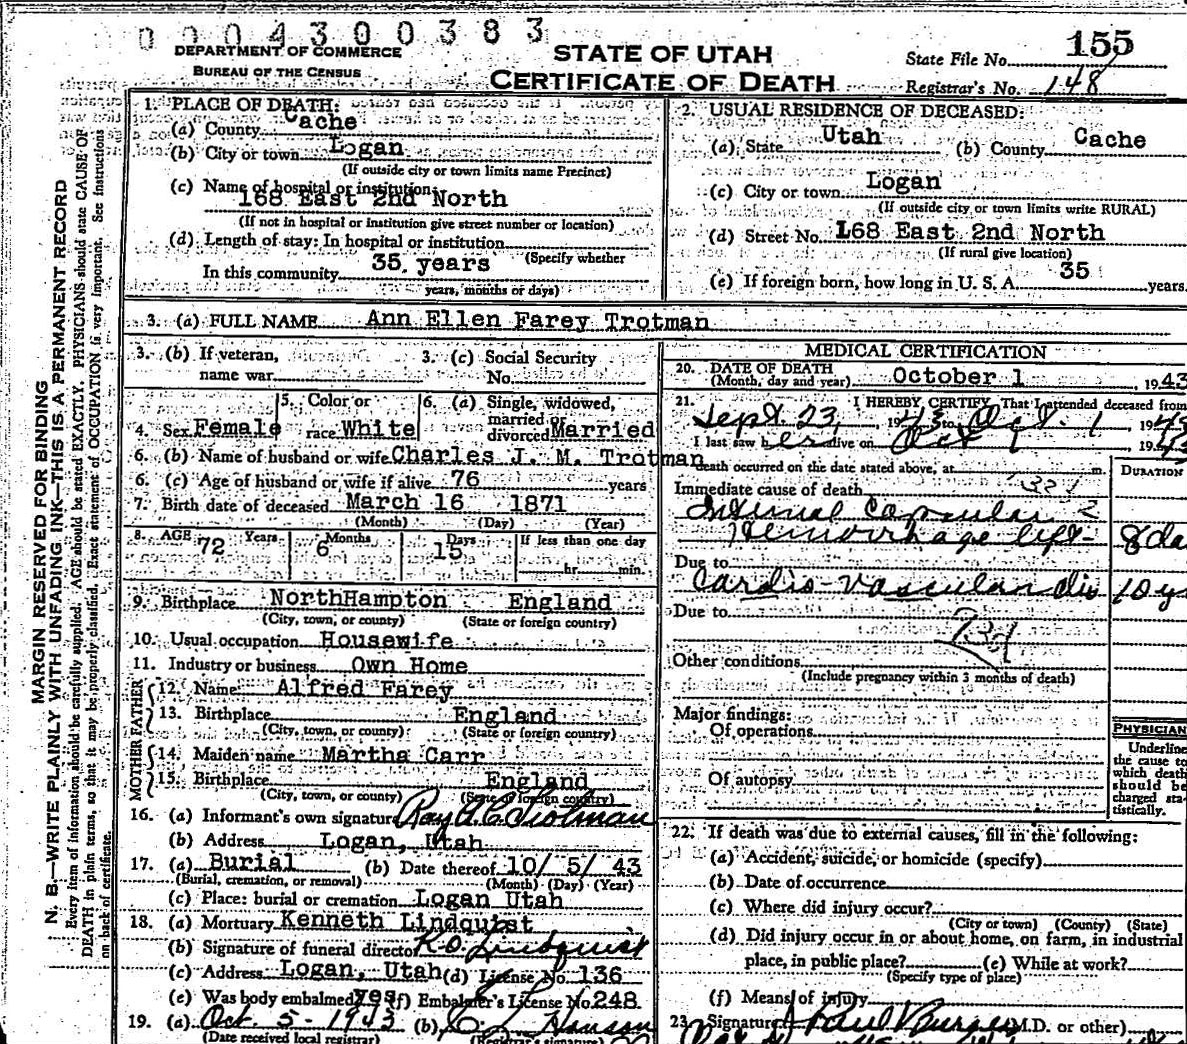 0 0 0 4 3 0 0 3 8 3
DEPARTMENT OF COMMERCE
BUREAU OF THE CENSUS
STATE OF UTAH
CERTIFICATE OF DEATH
State File No. 155
Registrar's No. 148
MARGIN RESERVED FOR BINDING
N. B.—WRITE PLAINLY WITH UNFADING INK—THIS IS A PERMANENT RECORD
Every item of information should be carefully supplied. AGE should be stated EXACTLY. PHYSICIANS should state CAUSE OF
DEATH in plain terms, so that it may be properly classified. Exact statement of OCCUPATION is very important. See instructions
on back of certificate.
1. PLACE OF DEATH:
(a) County Cache
(b) City or town Logan
(If outside city or town limits name Precinct)
(c) Name of hospital or institution:
168 East 2nd North
(If not in hospital or institution give street number or location)
(d) Length of stay: In hospital or institution
(Specify whether
In this community 35 years
years, months or days)
2. USUAL RESIDENCE OF DECEASED:
(a) State Utah (b) County Cache
(c) City or town Logan
(If outside city or town limits write RURAL)
(d) Street No. 168 East 2nd North
(If rural give location)
(e) If foreign born, how long in U. S. A. 35 years.
3. (a) FULL NAME Ann Ellen Farey Trotman
3. (b) If veteran,
name war
3. (c) Social Security
No.
4. Sex Female
5. Color or
race White
6. (a) Single, widowed,
married or
divorced Married
6. (b) Name of husband or wife Charles J. M. Trotman
6. (c) Age of husband or wife if alive 76 years
7. Birth date of deceased March 16 1871
(Month) (Day) (Year)
8. AGE 72 Years 6 Months 15 Days If less than one day
hr. min.
9. Birthplace NorthHampton England
(City, town, or county) (State or foreign country)
10. Usual occupation Housewife
11. Industry or business Own Home
FATHER
12. Name Alfred Farey
13. Birthplace England
(City, town, or county) (State or foreign country)
MOTHER
14. Maiden name Martha Carr
15. Birthplace England
(City, town, or county) (State or foreign country)
16. (a) Informant's own signature Ray A. C. Trotman
(b) Address Logan, Utah
17. (a) Burial (b) Date thereof 10/ 5/ 43
(Burial, cremation, or removal) (Month) (Day) (Year)
(c) Place: burial or cremation Logan Utah
18. (a) Mortuary Kenneth Lindquist
(b) Signature of funeral director K. O. Lindquist
(c) Address Logan, Utah (d) License No. 136
(e) Was body embalmed? Yes (f) Embalmer's License No. 248
19. (a) Oct. 5 - 1943 (b) C. L. Hanson
(Date received local registrar) (Registrar's signature)
MEDICAL CERTIFICATION
20. DATE OF DEATH
(Month, day and year) October 1, 1943
21. I HEREBY CERTIFY, That I attended deceased from
Sept. 23, 1943 to Oct. 1 1943
I last saw her alive on Oct 1 1943
death occurred on the date stated above, at m.
DURATION
Immediate cause of death
Internal Capsular
Hemorrhage left 8 da
Due to
Cardio-vascular dis 10 y
Due to
Other conditions
(Include pregnancy within 3 months of death)
Major findings:
Of operations
Of autopsy
PHYSICIAN
Underline
the cause to
which death
should be
charged sta-
tistically.
22. If death was due to external causes, fill in the following:
(a) Accident, suicide, or homicide (specify)
(b) Date of occurrence
(c) Where did injury occur?
(City or town) (County) (State)
(d) Did injury occur in or about home, on farm, in industrial
place, in public place? (e) While at work?
(Specify type of place)
(f) Means of injury
23. Signature (M.D. or other)